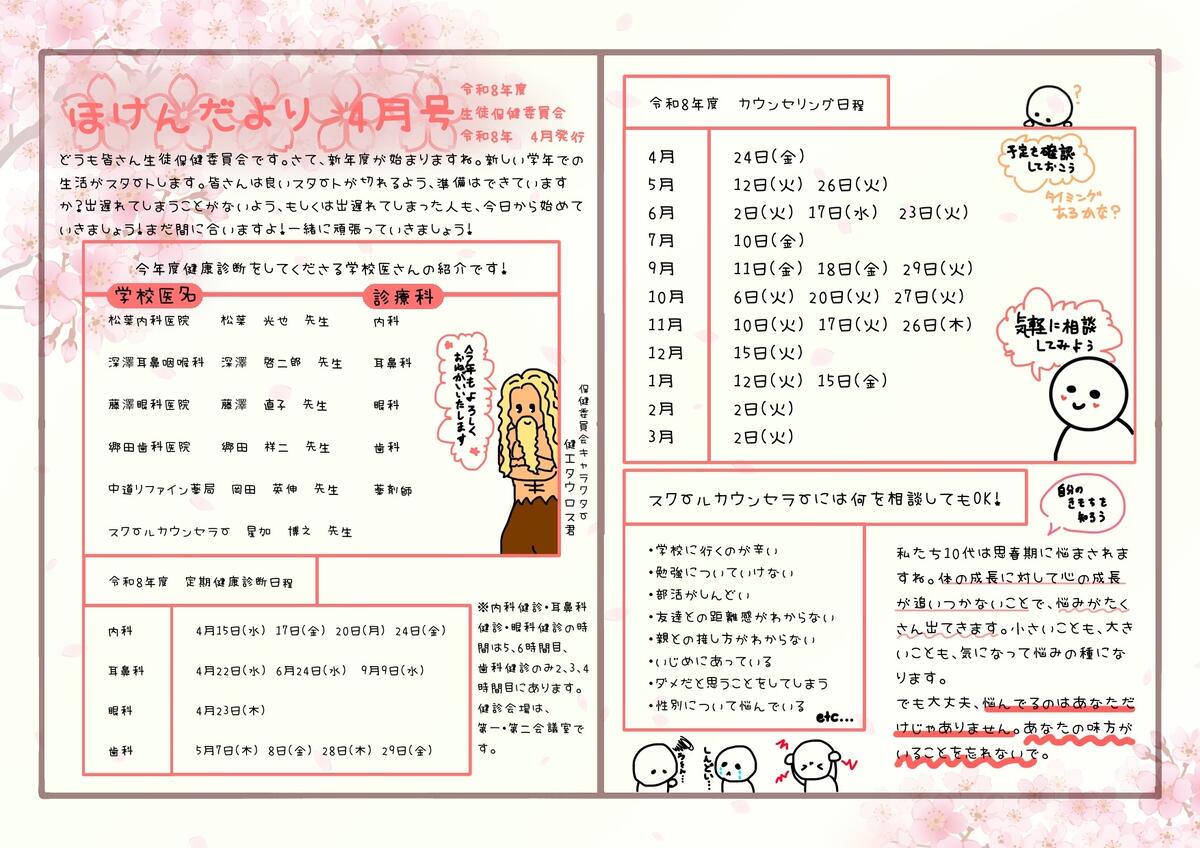 ほけんだより 4月号
令和8年度
生徒保健委員会
令和8年 4月発行
どうも皆さん生徒保健委員会です。さて、新年度が始まりますね。新しい学年での
生活がスタートします。皆さんは良いスタートが切れるよう、準備はできています
か?出遅れてしまうことがないよう、もしくは出遅れてしまった人も、今日から始めて
いきましょう!まだ間に合いますよ!一緒に頑張っていきましょう!
今年度健康診断をしてくださる学校医さんの紹介です!
学校医名 診療科
松葉内科医院 松葉 光せ 先生 内科
深澤耳鼻咽喉科 深澤 啓二郎 先生 耳鼻科
藤澤眼科医院 藤澤 直子 先生 眼科
郷田歯科医院 郷田 祥二 先生 歯科
中道リファイン薬局 岡田 英伸 先生 薬剤師
スクールカウンセラー 星加 博之 先生
今年もよろしく
おねがいいたします
保健委員会キャラクター
健エタウロス君
令和8年度 定期健康診断日程
内科 4月15日(水) 17日(金) 20日(月) 24日(金)
耳鼻科 4月22日(水) 6月24日(水) 9月9日(水)
眼科 4月23日(木)
歯科 5月7日(木) 8日(金) 28日(木) 29日(金)
※内科健診・耳鼻科
健診・眼科健診の時
間は5、6時間目、
歯科健診のみ2、3、4
時間目にあります。
健診会場は、
第一・第二会議室で
す。
令和8年度 カウンセリング日程
4月 24日(金)
5月 12日(火) 26日(火)
6月 2日(火) 17日(水) 23日(火)
7月 10日(金)
9月 11日(金) 18日(金) 29日(火)
10月 6日(火) 20日(火) 27日(火)
11月 10日(火) 17日(火) 26日(木)
12月 15日(火)
1月 12日(火) 15日(金)
2月 2日(火)
3月 2日(火)
?
予定を確認
しておこう
タイミング
あるかな?
気軽に相談
してみよう
スクールカウンセラーには何を相談してもOK!
・学校に行くのが辛い
・勉強についていけない
・部活がしんどい
・友達との距離感がわからない
・親との接し方がわからない
・いじめにあっている
・ダメだと思うことをしてしまう
・性別について悩んでいる
etc...
うーん...
しんどい...
自分の
きもちを
知ろう
私たち10代は思春期に悩まされま
すね。体の成長に対して心の成長
が追いつかないことで、悩みがたく
さん出てきます。小さいことも、大き
いことも、気になって悩みの種にな
ります。
でも大丈夫、悩んでるのはあなただ
けじゃありません。あなたの味方が
いることを忘れないで。